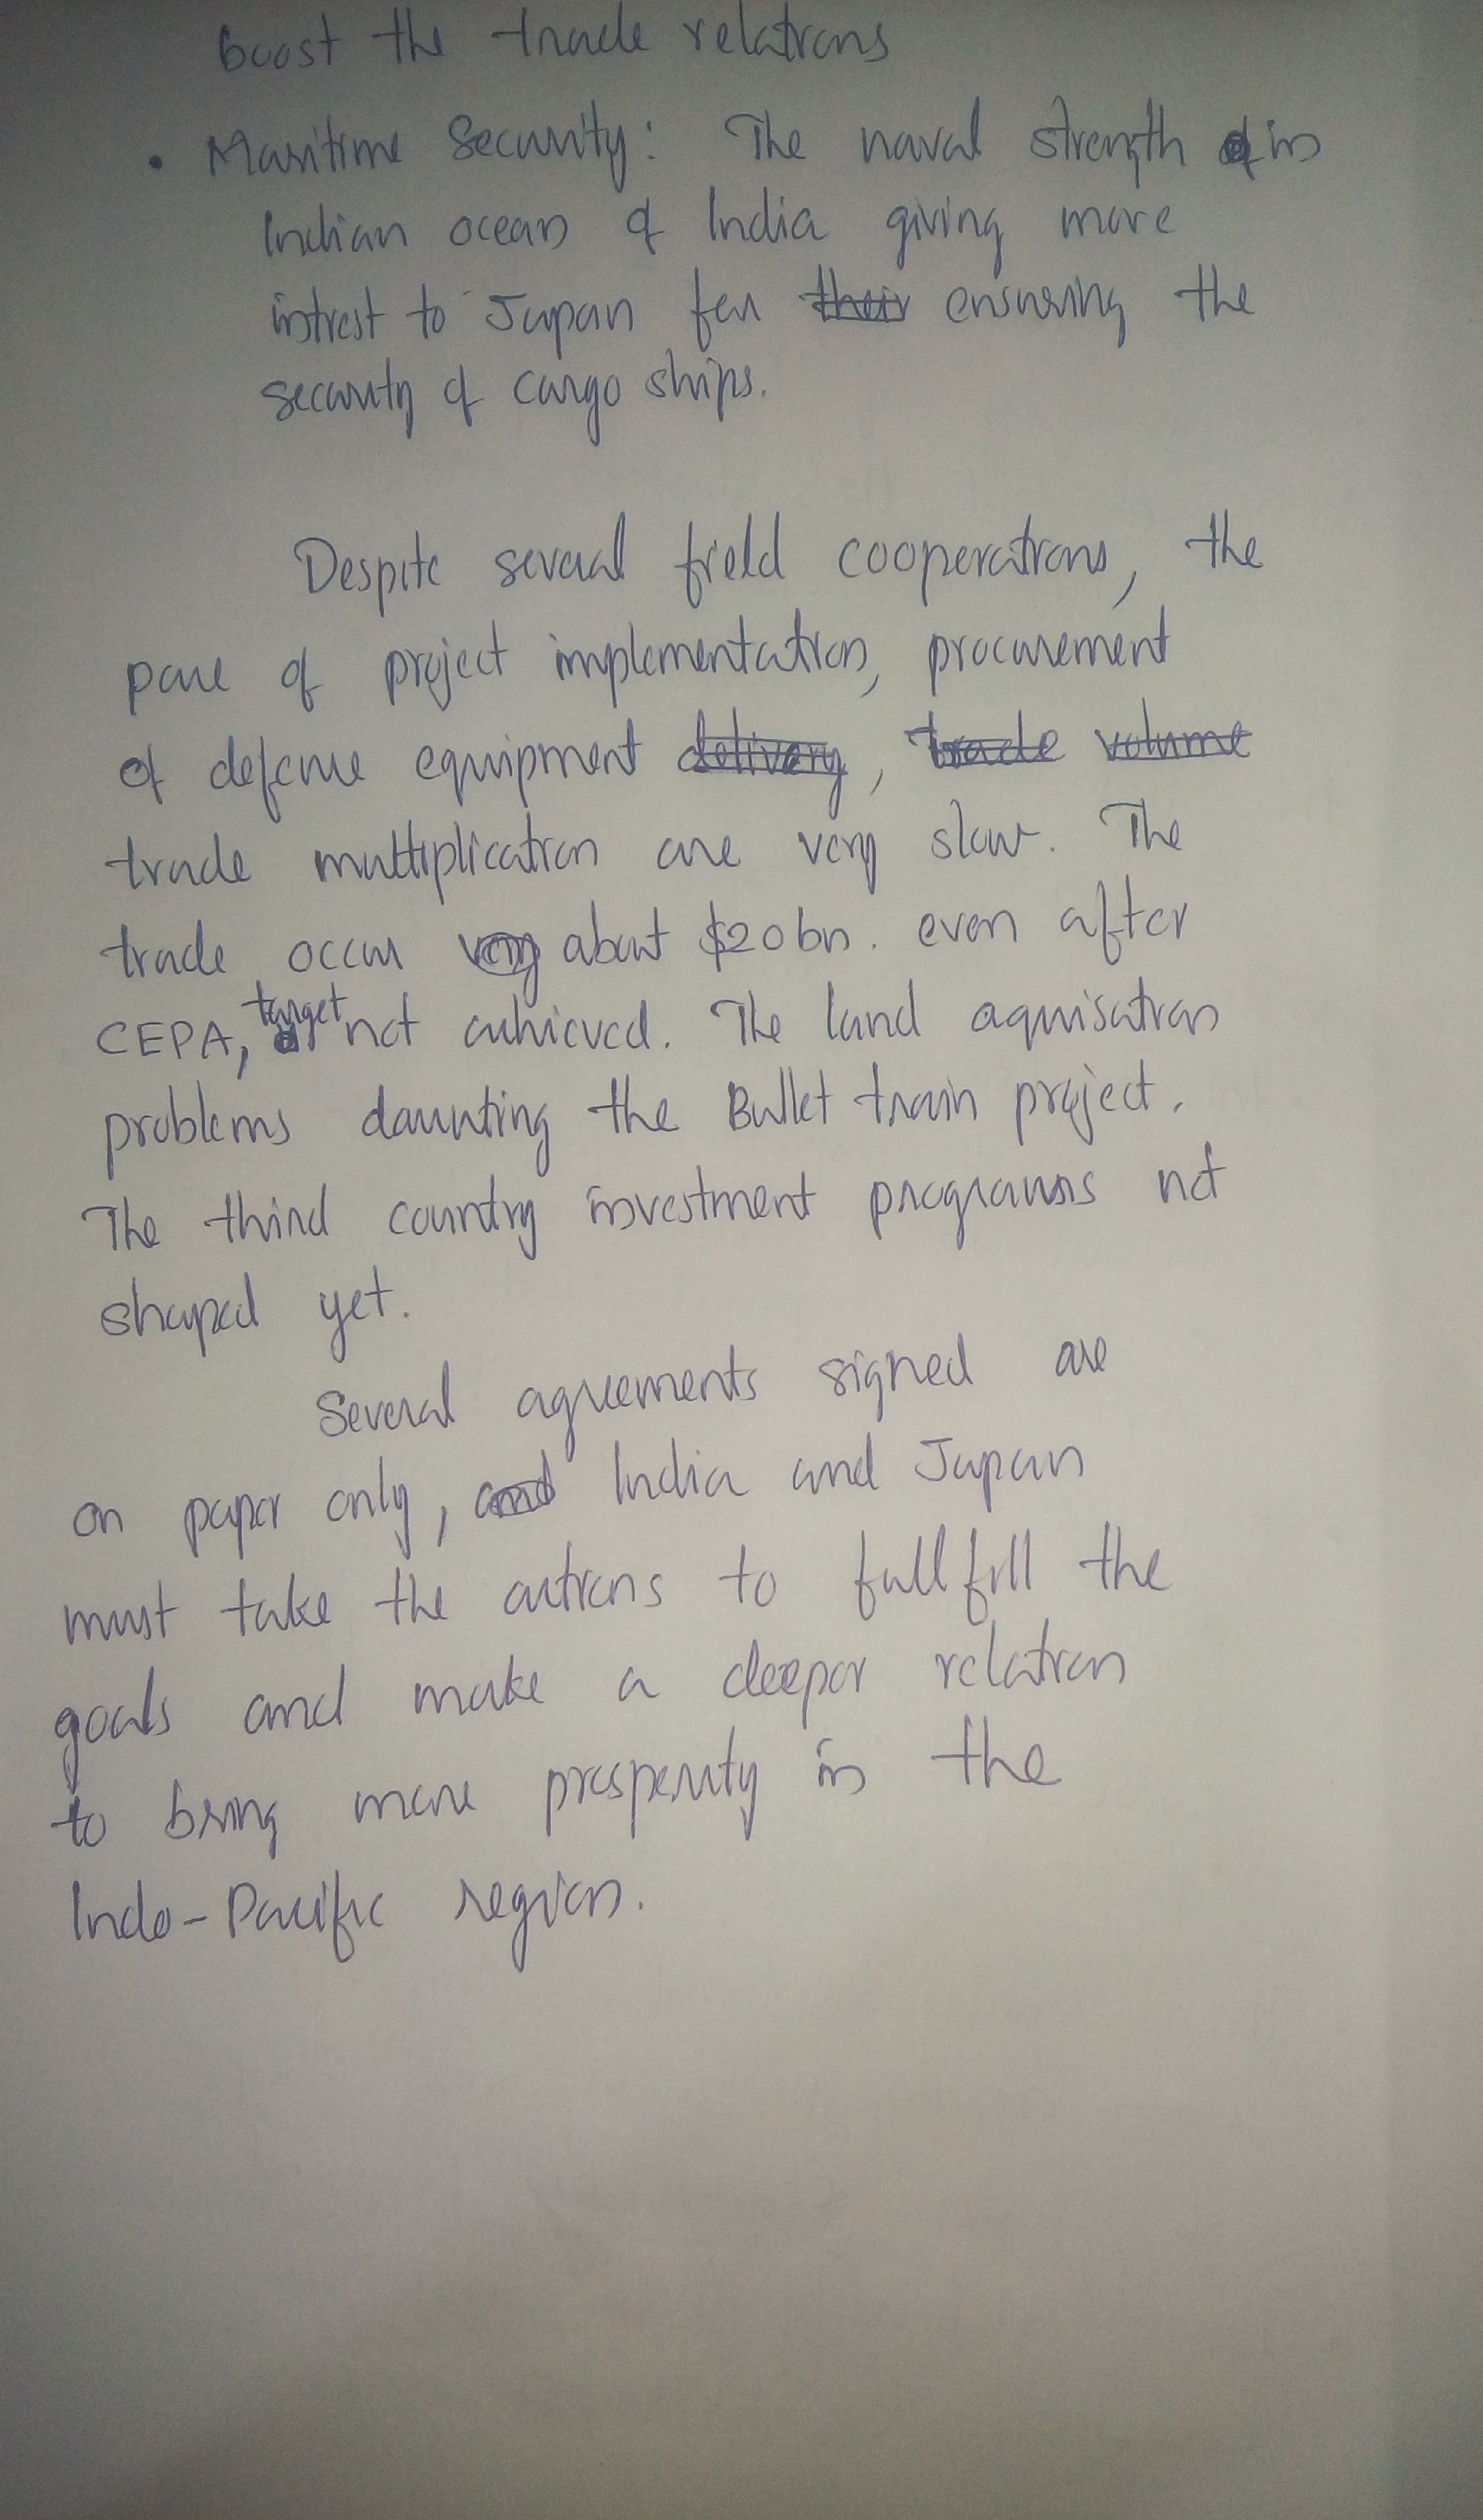 boost the trade relations
• Maritime Security: The naval strength in
Indian ocean of India giving more
intrest to Japan for their ensuring the
security of cargo ships.
Despite several field cooperations, the
pace of project implementation, procurement
of defense equipment delivery, trade volume
trade multiplication are very slow. The
trade occur very about $20bn. even after
CEPA, target not achieved. The land aquisation
problems daunting the Bullet train project.
The third country investment programs not
shaped yet.
Several agreements signed are
on paper only, and India and Japan
must take the actions to fullfill the
goals and make a deeper relation
to bring more prosperity in the
Indo-Pacific region.